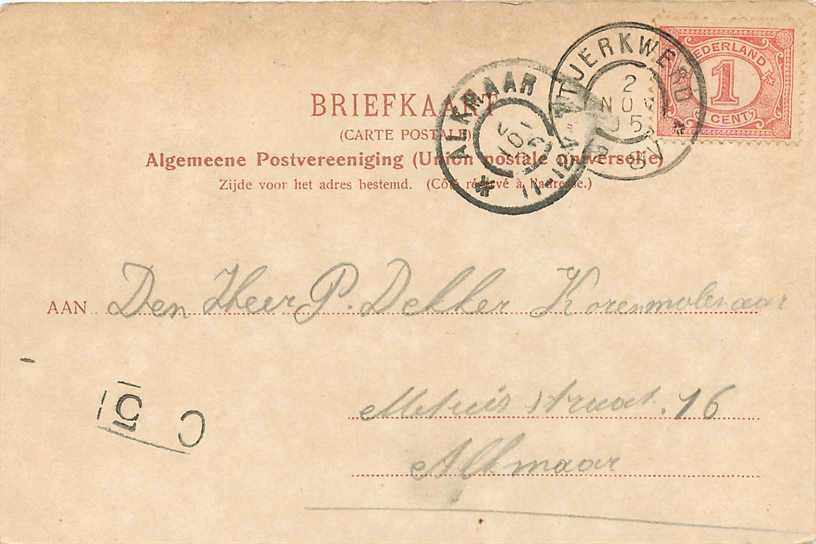 TJERKWERD
2 NOV 05
ALKMAAR
NEDERLAND
1
CENT
BRIEFKAART
(CARTE POSTALE)
Algemeene Postvereeniging (Union postale universelle)
Zijde voor het adres bestemd. (Côté réservé à l'adresse.)
AAN Den Heer P. Dekker Korenmolenaar
straat. 16
Alkmaar
C 5